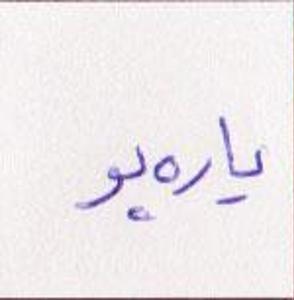 یارەبو